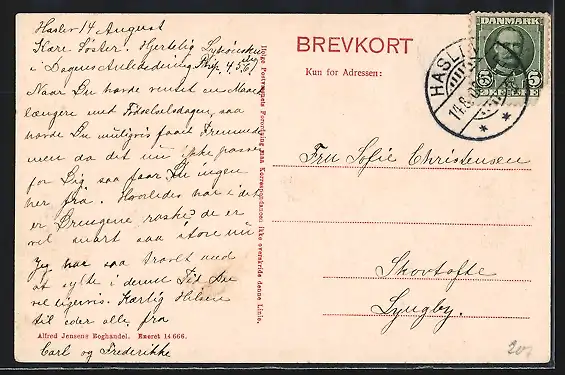 Hasler 14 August
Kære Søster. Hjertelig Lykønskning
i Dagens Anledning
Naar Du havde ventet en Maaned
længere med Fødselsdagen, saa
havde Du muligvis faaet Fremmede
men da det nu ikke passer
for Dig saa faar Du ingen
her fra. Hvorledes har i det
er Drengene raske? de er
vel snart saa store nu
Jeg har saa travlt med
at sylte i denne Tid Du
vel ligervis. Kærlig Hilsen
til eder alle fra
Alfred Jensens Boghandel. Eneret 14 666.
Carl og Frederikke
Ifølge Postvæsenets Forordning maa Korrespondancen ikke overskride denne Linie.
BREVKORT
Kun for Adressen:
DANMARK
5 5
HASLE
14.8.
Fru Sofie Christensen
Skovtofte
Lyngby.
20,